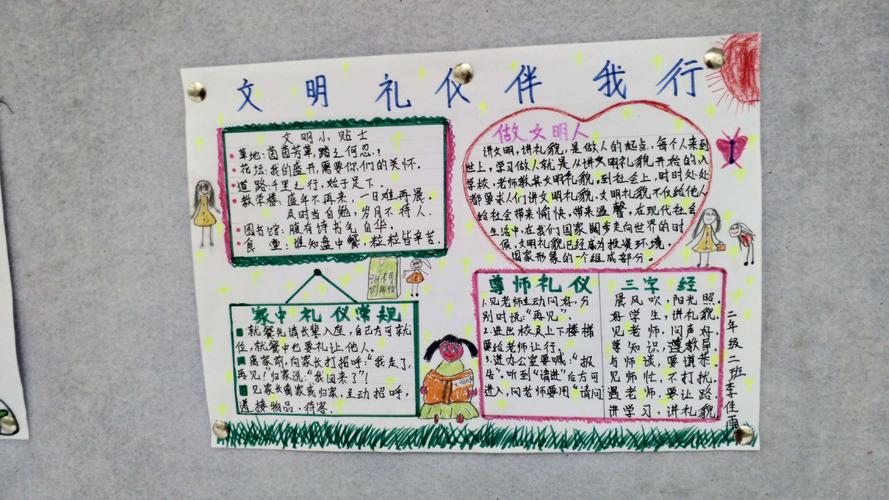 文明礼仪伴我行
文明小贴士
草地:茵茵芳草,踏之何忍?
花坛:我的盛开,需要你们的关怀。
道路:千里之行,始于足下。
教学楼:盛年不再来,一日难再晨。
及时当自勉,岁月不待人。
图书馆:腹有诗书气自华。
食堂:谁知盘中餐,粒粒皆辛苦。
做文明人
讲文明,讲礼貌,是做人的起点,每个人来到
世上,学习做人就是从讲文明礼貌开始的入
学校,老师教其文明礼貌,到社会上,时时处处
都要求人们讲文明礼貌,文明礼貌不仅给他人
给社会带来愉快,带来温馨,在现代社会
生活中,在我们国家阔步走向世界的时
候,文明礼貌已经成为投资环境,
国家形象的一个组成部分。
家中礼仪常规
就餐先请长辈入座,自己方可就
位,就餐中也要礼让他人。
离家前,向家长打招呼:"我走了,
再见!"归家说:"我回来了"!
见家长离家或归家,主动招呼,
递接物品,待客.
尊师礼仪
1.见老师主动问好,分
别时说:"再见"。
2.进出校及上下楼梯
要给老师让行。
3.进办公室要喊:"报
告",听到"请进"后方可
进入,问老师要用"请问
三字经
晨风吹,阳光照.
好学生,讲礼貌.
见老师,问声好.
学知识,遵教导
与师谈,要谦恭.
见师忙,不打扰.
遇老师,要让路
讲学习,讲礼貌
二年级二班李佳雨